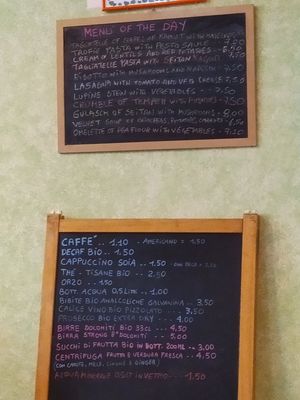 MENU OF THE DAY
TAGLIATELLE OF FLOUR OF KAMUT WITH
TROFIE PASTA WITH PESTO SAUCE
CREAM OF LENTILS AND RED POTATOES 6,50
TAGLIATELLE PASTA WITH SEITAN
RISOTTO WITH MUSHROOMS AND
LASAGNA WITH TOMATO AND VEG CHEESE 7,50
LUPINS STEW WITH VEGETABLES - - 7,50
CRUMBLE OF TEMPEH WITH 7,50
GULASCH OF SEITAN WITH MUSHROOMS - 8,00
VELVET SOUP OF CHICKPEAS, 6,50
OMELETTE OF PEA FLOUR WITH VEGETABLES -
CAFFE' .. 1.10 - AMERICANO = 1.50
DECAF BIO .. 1.50
CAPPUCCINO SOIA .. 1.50
THÉ - TISANE BIO .. 2.50
ORZO .. 1.50
BOTT. ACQUA 0,5 LITE .. 1.00
BIBITE BIO ANALCOLICHE GALVANINA .. 3,50
CALICE VINO BIO PIZZOLATO ... 3,50
PROSECCO BIO EXTRA DRY .... 4.00
BIRRE DOLOMITI BIO 33CL ... 4,50
BIRRA STRONG E' DOLOMITI" .. 5.00
SUCCHI DI FRUTTA BIO IN BOTT. 200ML .. 3.00
CENTRIFUGA FRUTTA E VERDURA FRESCA .. 4,50
(CON CAROTE, MELE, LIMONE E GINGER)
ACQUA MINERALE 0,5LT IN VETRO ... 1.50